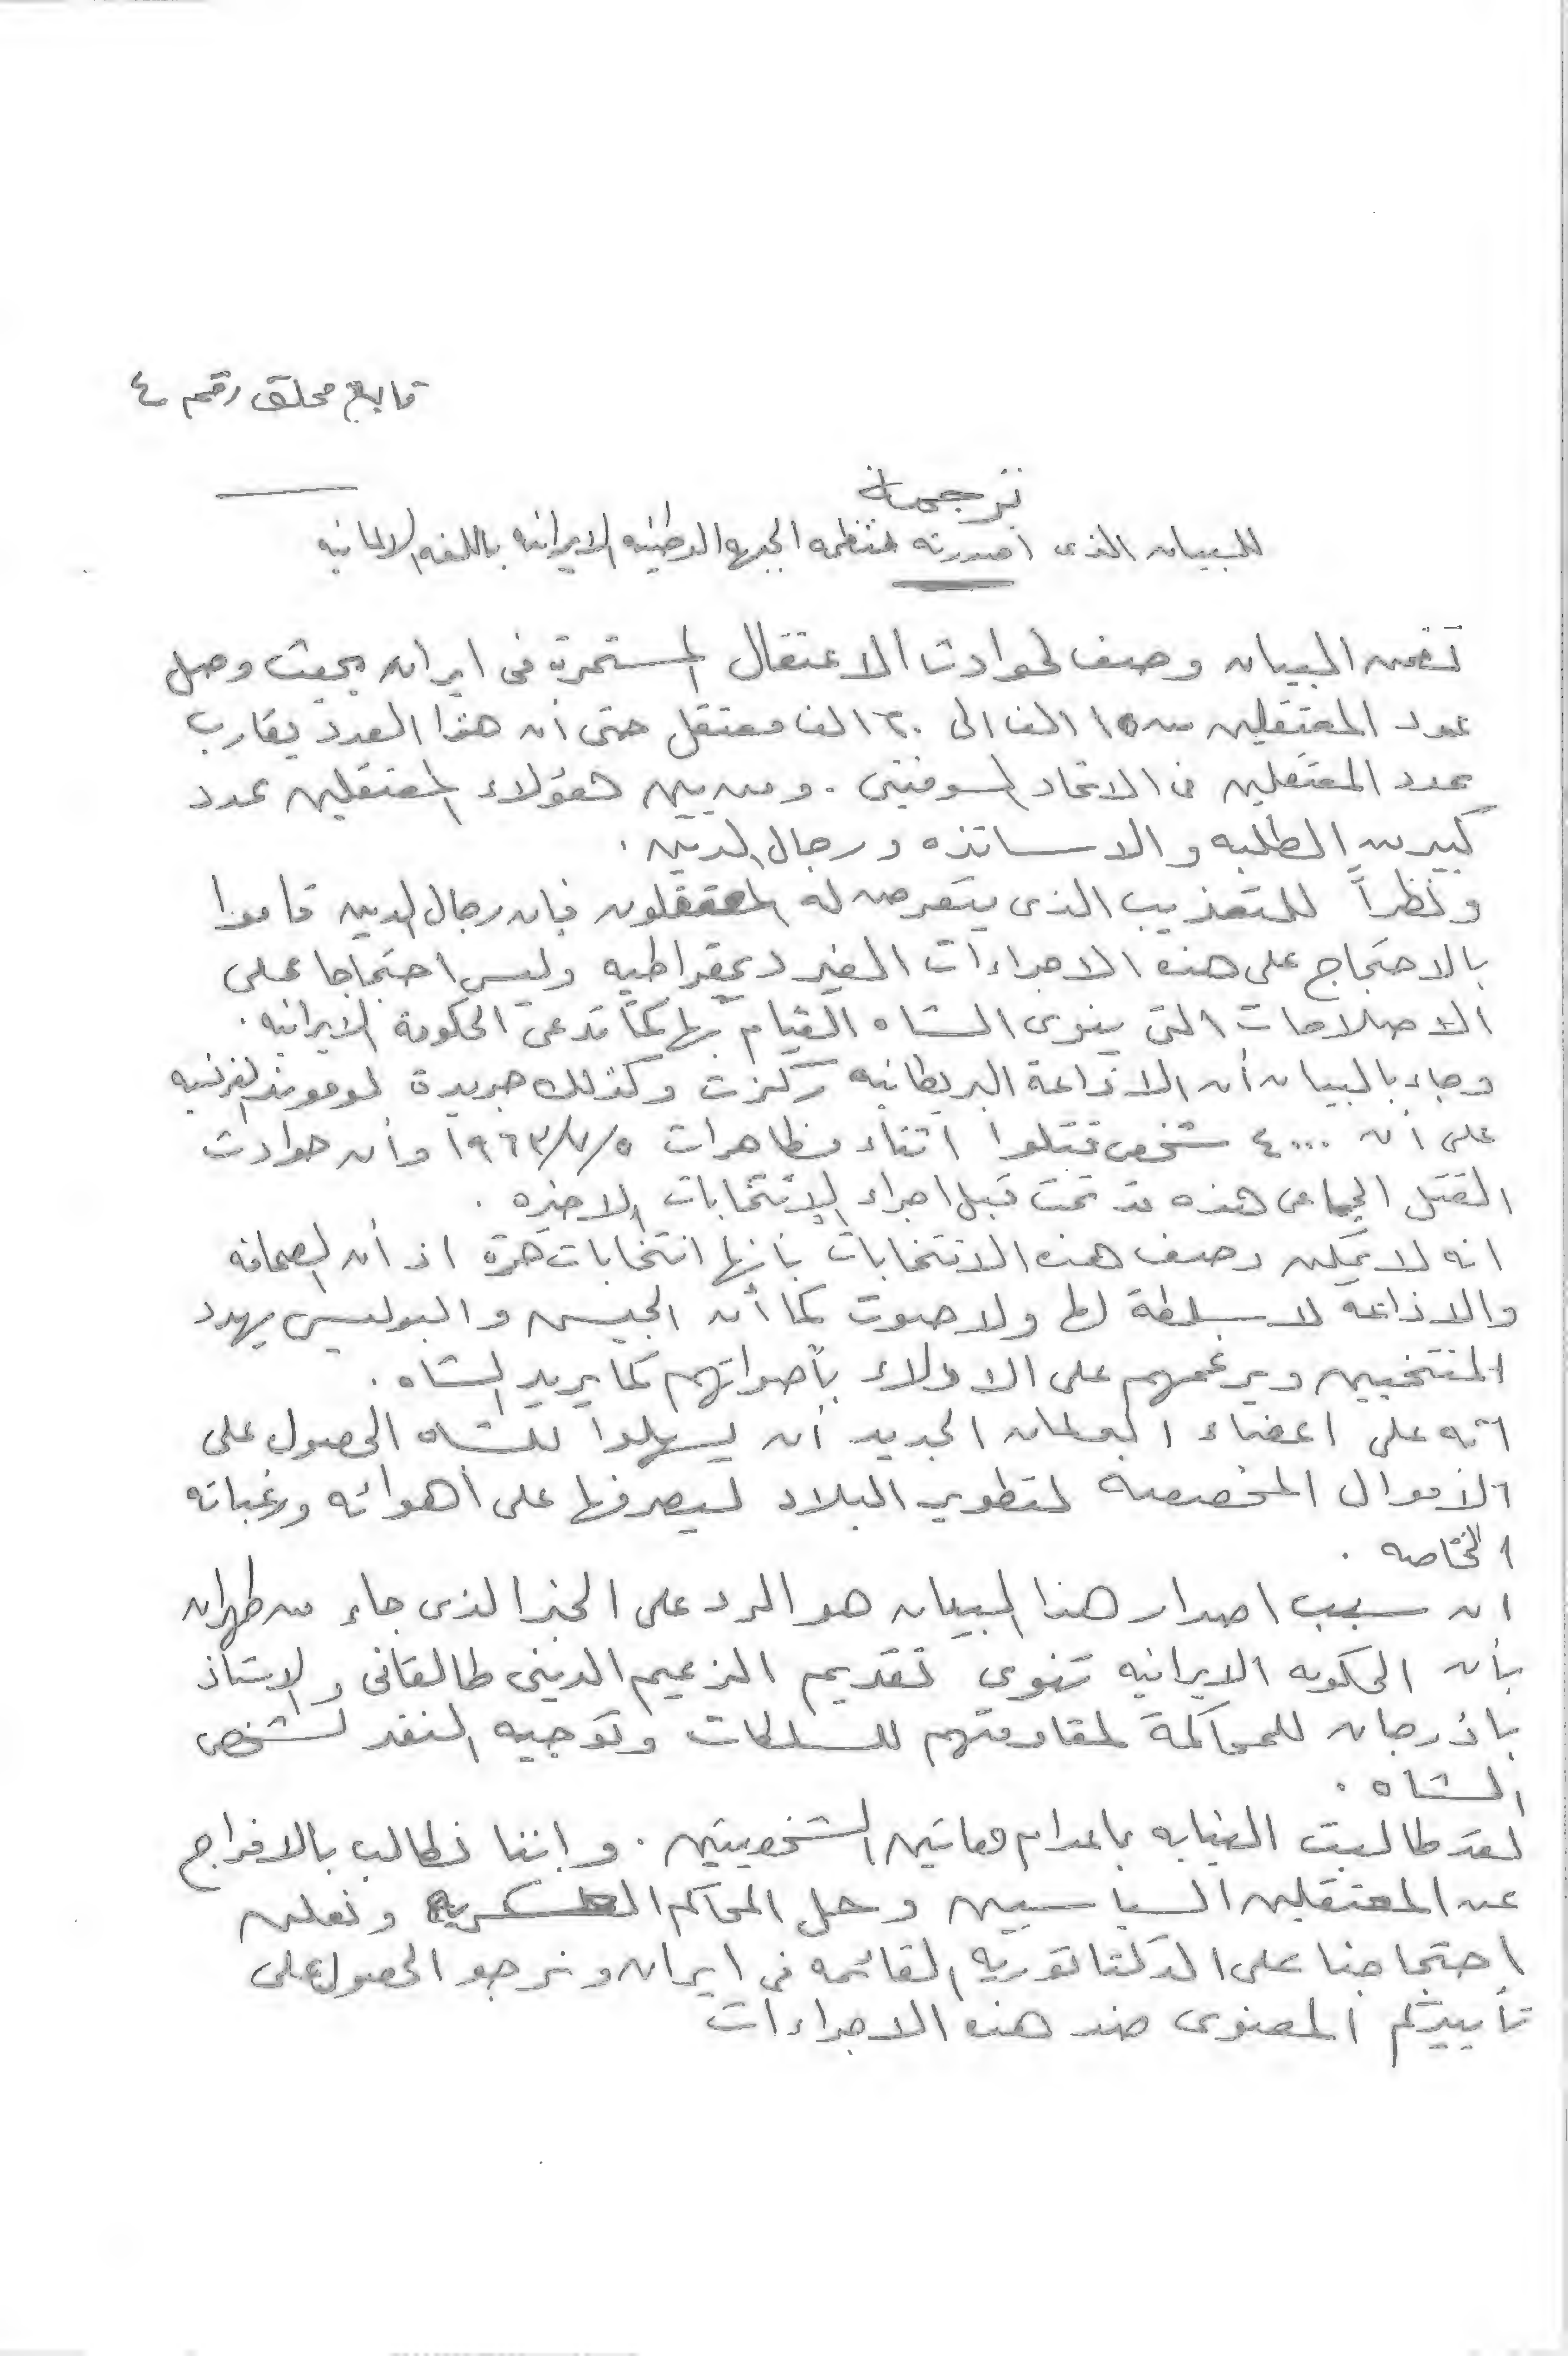 تابع محلق رقم ٤
ترجمة
للبيان الذى اصدرته منظمه الجبهه الوطنيه الايرانيه باللغه الالمانيه
تضمن البيان وصف لحوادث الاعتقال المستمرة فى ايران بحيث وصل
عدد المعتقلين من ١٥ الف الى ٢٠ الف معتقل حتى أن هذا العدد يقارب
عدد المعتقلين فى الاتحاد السوفيتى . ومن بين هؤلاء المعتقلين عدد
كبير من الطلبه والاساتذه ورجال الدين .
ونظراً للتعذيب الذى يتعرض له المعتقلون فان رجال الدين قاموا
بالاحتجاج على هذه الاجراءات الغير ديمقراطيه وليس احتجاجا على
الاصلاحات التى ينوى الشاه القيام بها كما تدعى الحكومة الايرانيه .
وجاء بالبيان أن الاذاعة البريطانيه ركزت وكذلك جريدة لوموند الفرنسيه
على أن ٤٠٠٠ شخص قتلوا اثناء مظاهرات ١٩٦٣/٧/٥ وأن حوادث
القتل الجماعى هذه قد تمت قبل اجراء الانتخابات الاخيره .
انه لا يمكن وصف هذه الانتخابات بأنها انتخابات حرة اذ أن الصحافه
والاذاعه لا سلطة لها ولا صوت كما أن الجيش والبوليس يهدد
المنتخبين ويرغمهم على الادلاء بأصواتهم كما يريد الشاه .
انه على اعضاء البرلمان الجديد أن يسهلوا للشاه الحصول على
الاموال المخصصة لتطوير البلاد ليصرفها على أهوائه ورغباته
الخاصه .
ان سبب اصدار هذا البيان هو الرد على الخبر الذى جاء من طهران
بأن الحكومه الايرانيه تنوى تقديم الزعيم الدينى طالقانى والاستاذ
باذرجان للمحاكمة لمقاومتهم للسلطات وتوجيه النقد لشخص
الشاه .
لقد طالبت النيابه باعدام هاتين الشخصيتين . واننا نطالب بالافراج
عن المعتقلين السياسيين وحل المحاكم العسكريه ونعلن
احتجاجنا على الدكتاتوريه القائمه فى ايران ونرجو الحصول على
تأييدكم المعنوى ضد هذه الاجراءات